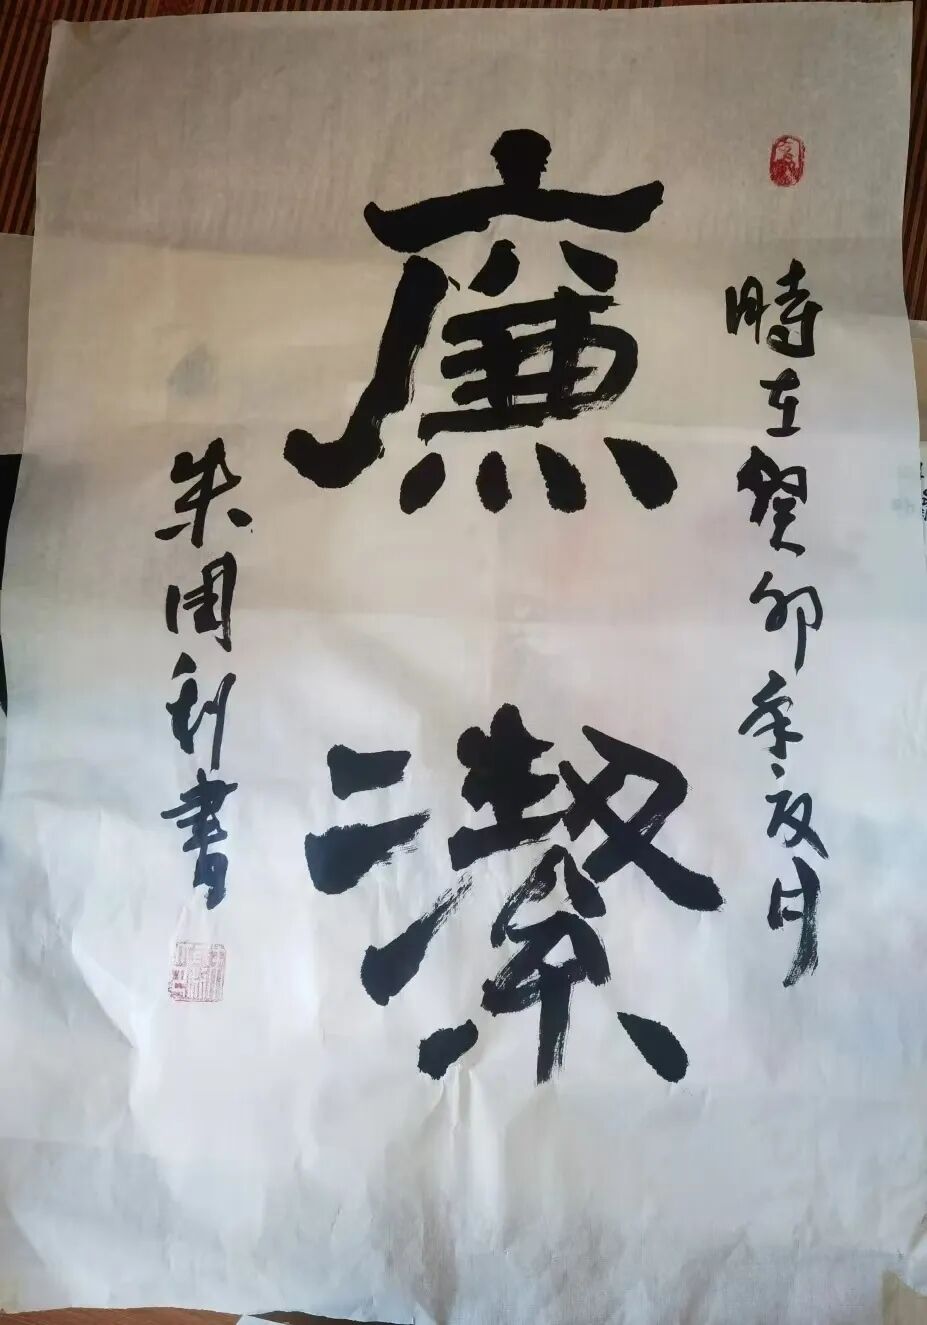 時在癸卯年夏月
廉潔
朱周利書